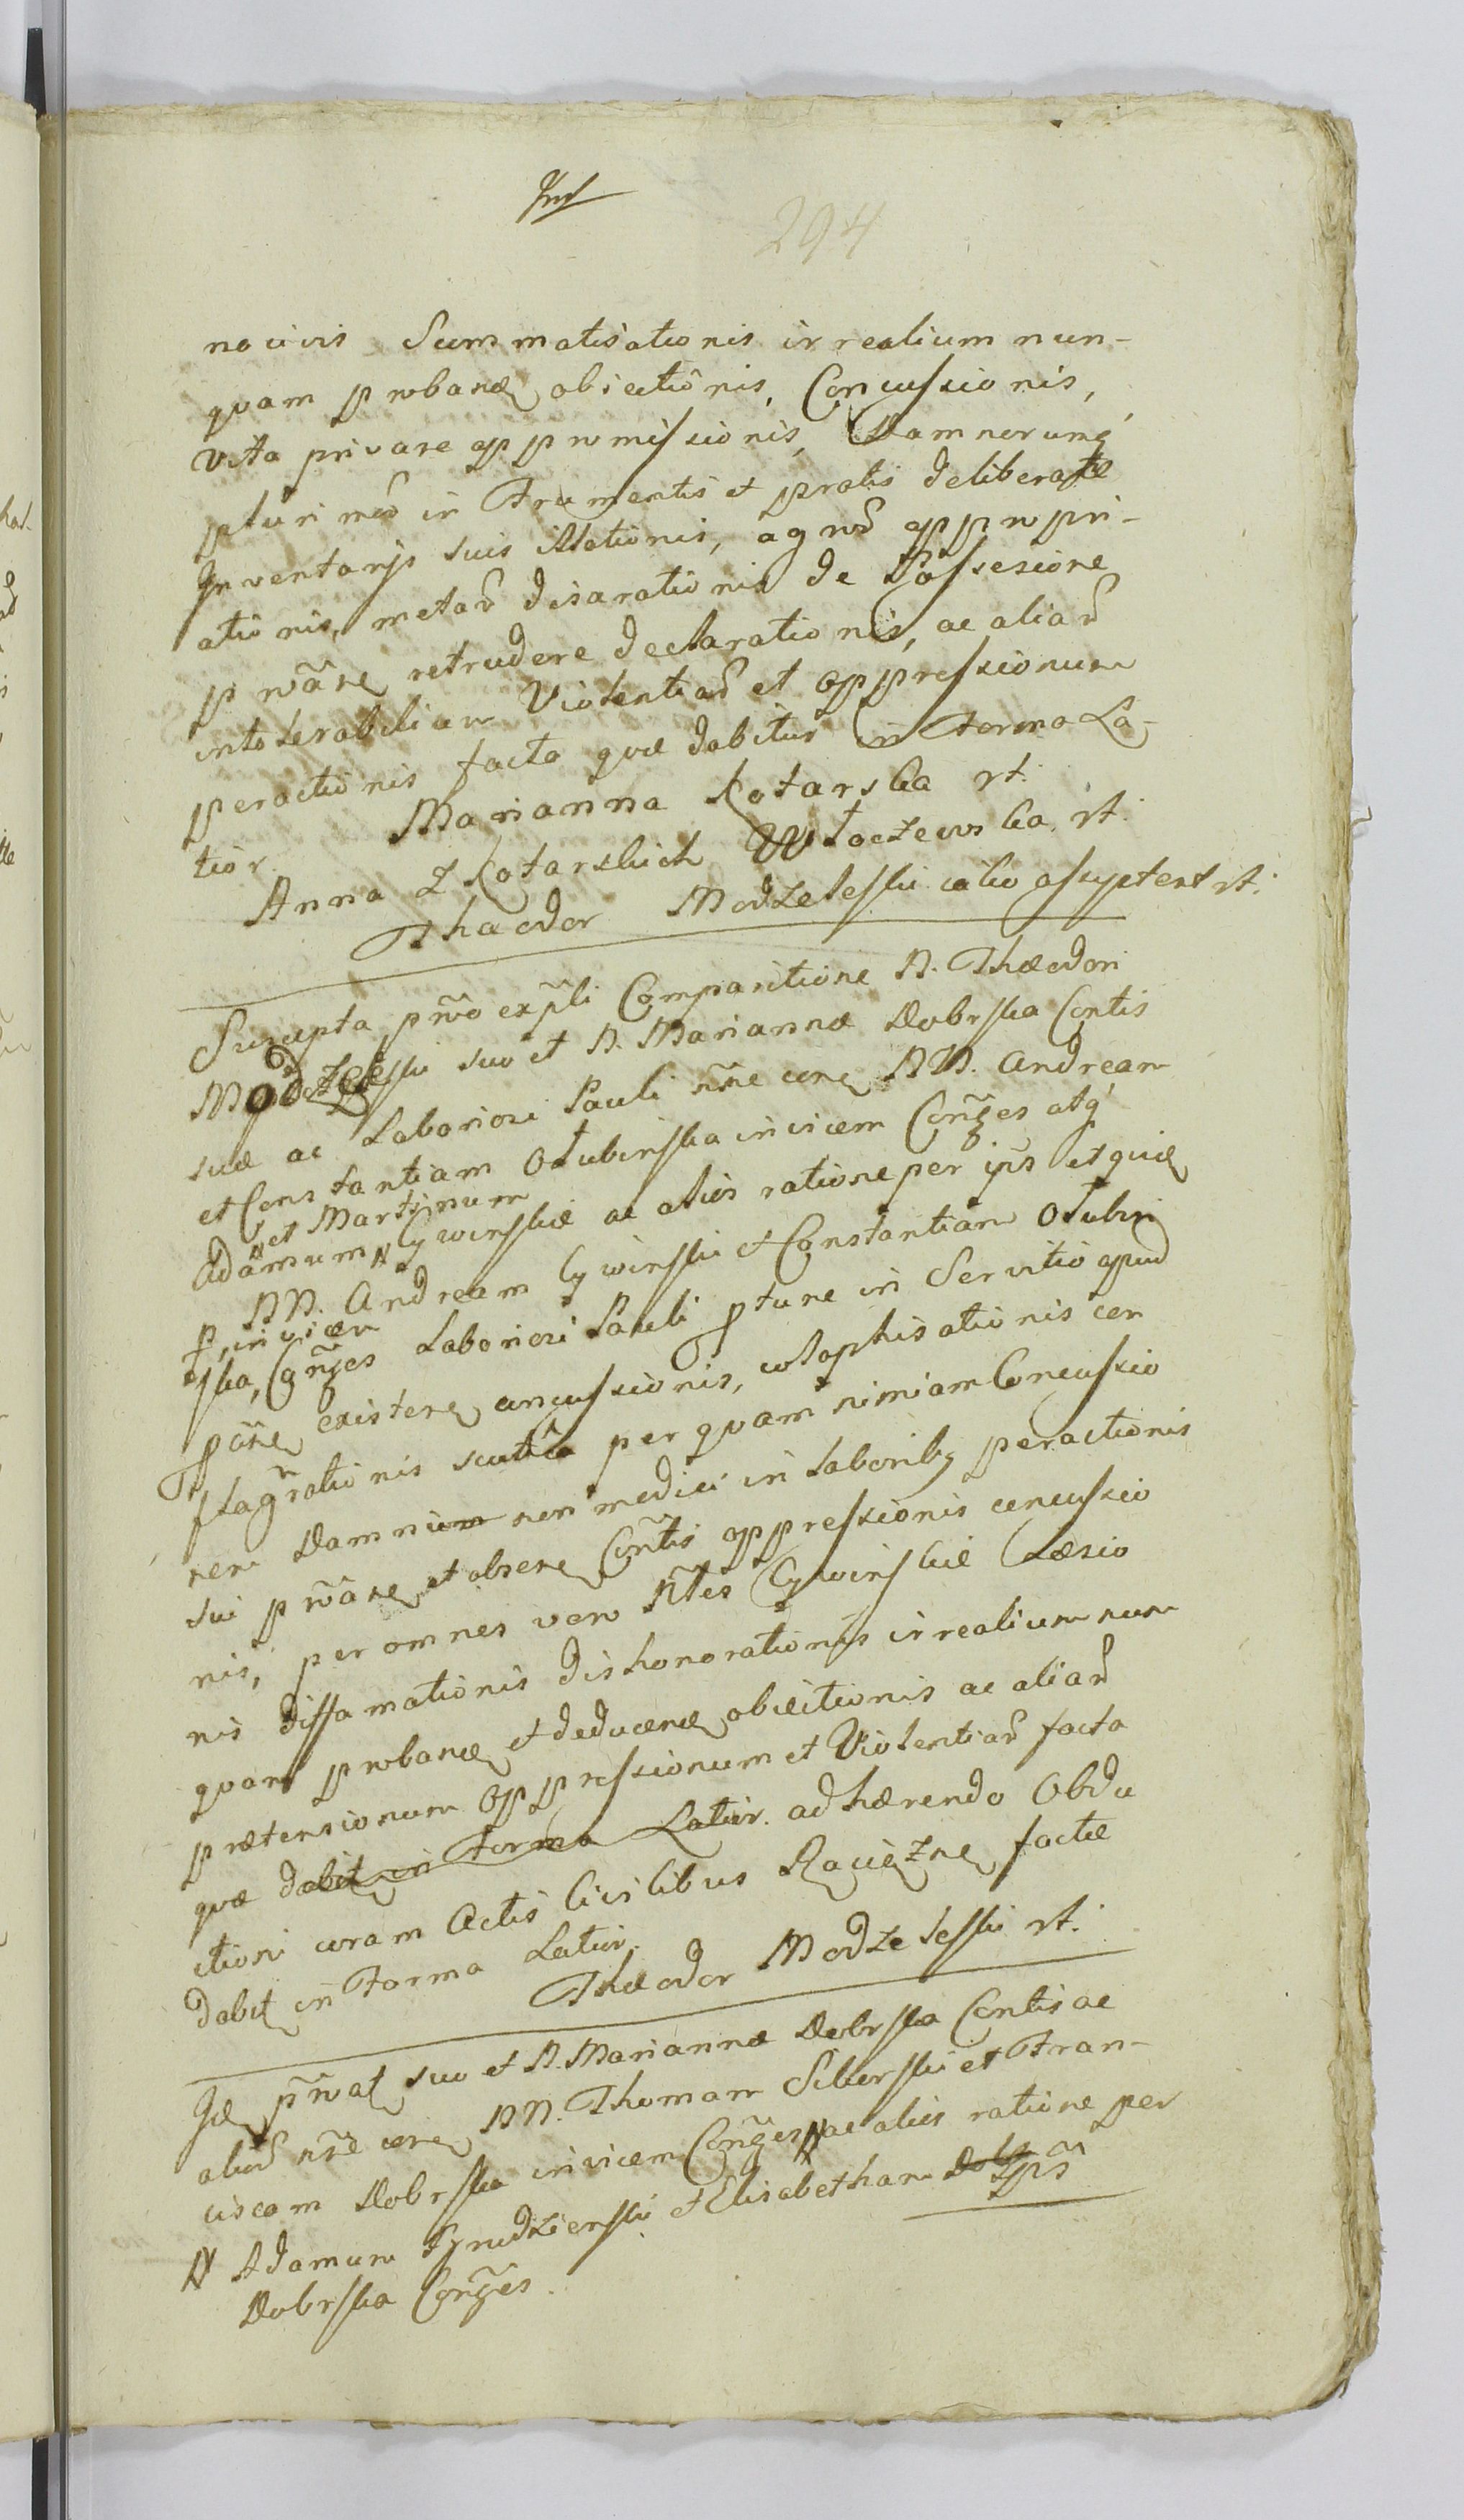 294
nocivis Summatisationis irrealium nun-
quam probanę obiectionis, Concussionis,
vita privare appromissionis, Damnorumq́
plurimor̃ in Frumentis et pratis deliberatæ
Inventarijs suis illationis, agror̃ appropri-
ationis, metar̃ disarationis de Possesione
prõāne retrudere declarationis, ac aliar̃
intolerabilium Violentiar̃ et oppressionum
peractionis facta quæ dabitur in Forma La-
tior. Marianna Kotarska rt.
Anna z Kotarskich Włoczewska rt.
Thaeodor Modzelesski
Suscepta prño exp̃li Comparitione N. Thæodori
Modzelesski suo et N. Mariannæ Dobrska Contis
suæ ac Laboriosi Pauli nr̃ne conę NN. Andream
et Constantiam Otubinska invicem Coñges atq́
Adamum et Martinum Cywinskie ac alios ratione per ip̃s et quidę
p NN. Andream Cywinski et Constantiam Otubin
ska, invicem Cõnges Laboriosi Pauli ptunc in Servitio apud
põne existenę concussionis, colaphisationis cen
flagrationis scutica per quam nimiam Concussio
nem Damnium non medici in laboribꝫ peractionis
sui prõāne et obsenę Cõntis oppressionis concussio
nis, per omnes vero Ñtes Cywinskie Læsio
nis diffamationis dishonorationis irrealium nun
quam probanę et deducenę obiectionis ac aliar̃
prætensionum oppressionum et Violentiar̃ facta
quæ dabit in Forma Latior. adhærendo Obdu
ctioni coram Actis Civilibus Raciązneę factæ
dabit in Forma Latior.
Thæodor Modzelesski rt.
Idę pr̃wat suo et N. Mariannæ Dobrska Contis ac
alior̃ nr̃ne conę NN. Thomam Siberski et Fran-
ciscam Dobrska invicem Coñges # ac alios ratione per
ip̃s
# Adamum Tyrudzienski et Elisabetham
Dobrska Coñges.